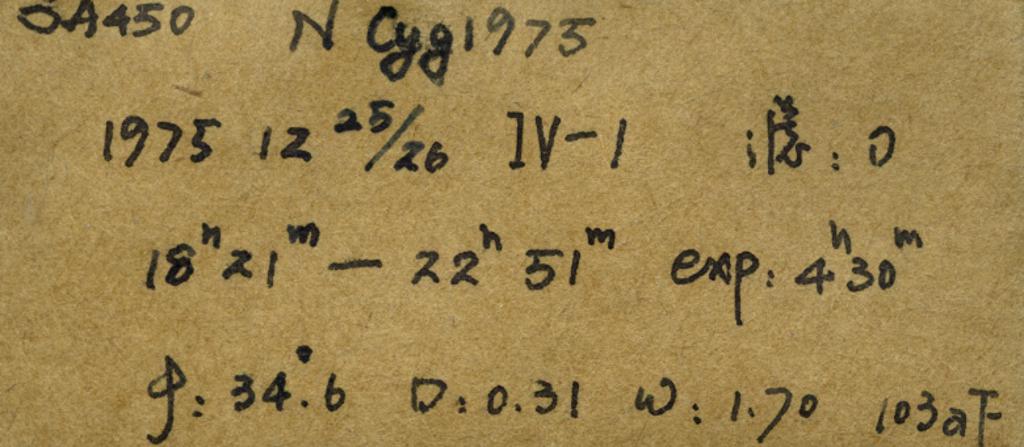 SA450 N Cyg 1975
1975 12 25/26 IV-1 滤: 0
18h21m — 22h51m exp: 4h30m
φ: 34°.6 D: 0.31 W: 1.70 103aF